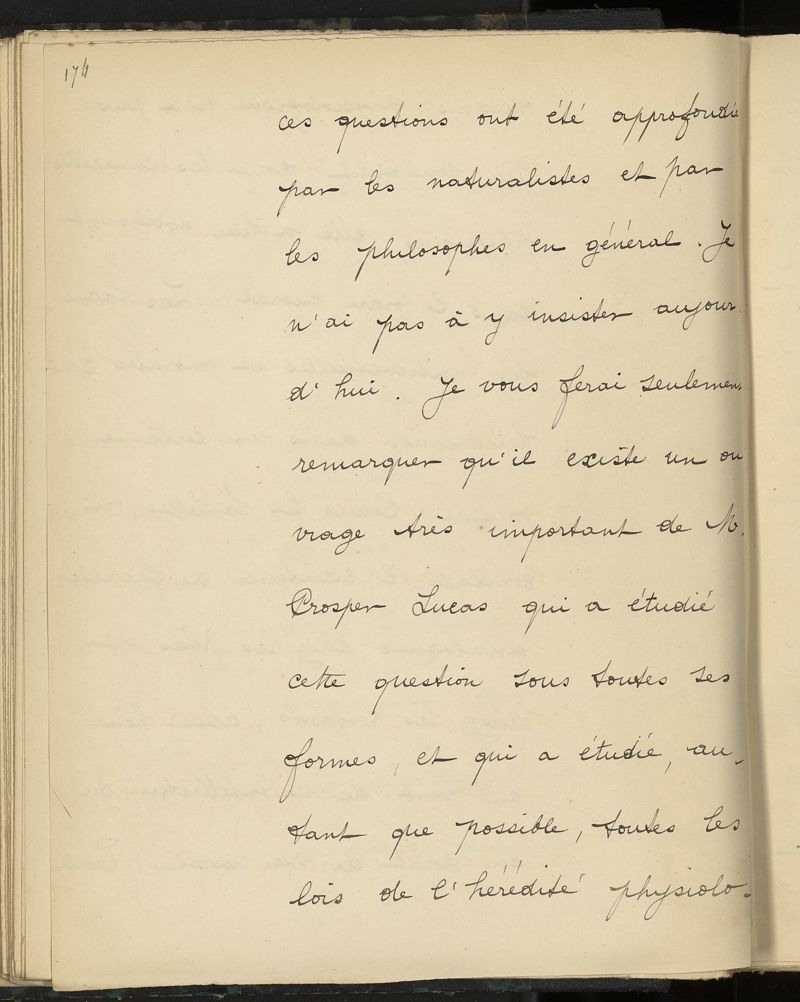 174
ces questions ont été approfondie
par les naturalistes et par
les philosophes en général. Je
n'ai pas à y insister aujour-
d'hui. Je vous ferai seulemen.
remarquer qu'il existe un ou
vrage très important de M.
Prosper Lucas qui a étudié
cette question sous toutes ses
formes, et qui a étudié, au-
tant que possible, toutes les
lois de l'hérédité physiolo-